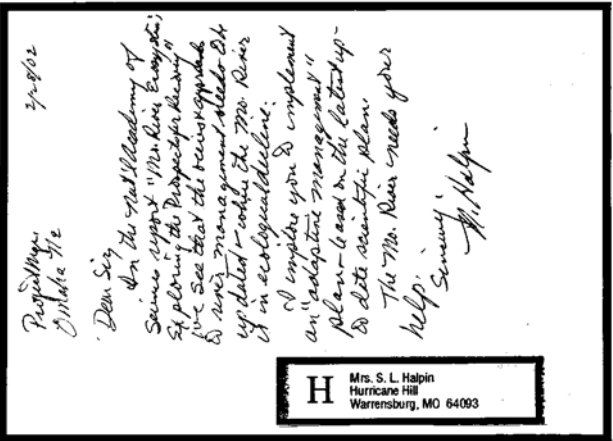 2/28/02
Project Mgr.
Omaha Ne
Dear Sir,
In the Nat'l Academy of
Science report "Mo. River Ecosystem;
Exploring the Prospects for Recovery"
I've see that the approach
to river management needs to be
updated - while the Mo. River
is in ecological decline.
I implore you to implement
an "adaptive management"
plan based on the latest up-
to date scientific plan.
The Mo. River needs your
help.
Sincerely,
Halpin
H
Mrs. S. L. Halpin
Hurricane Hill
Warrensburg, MO 64093